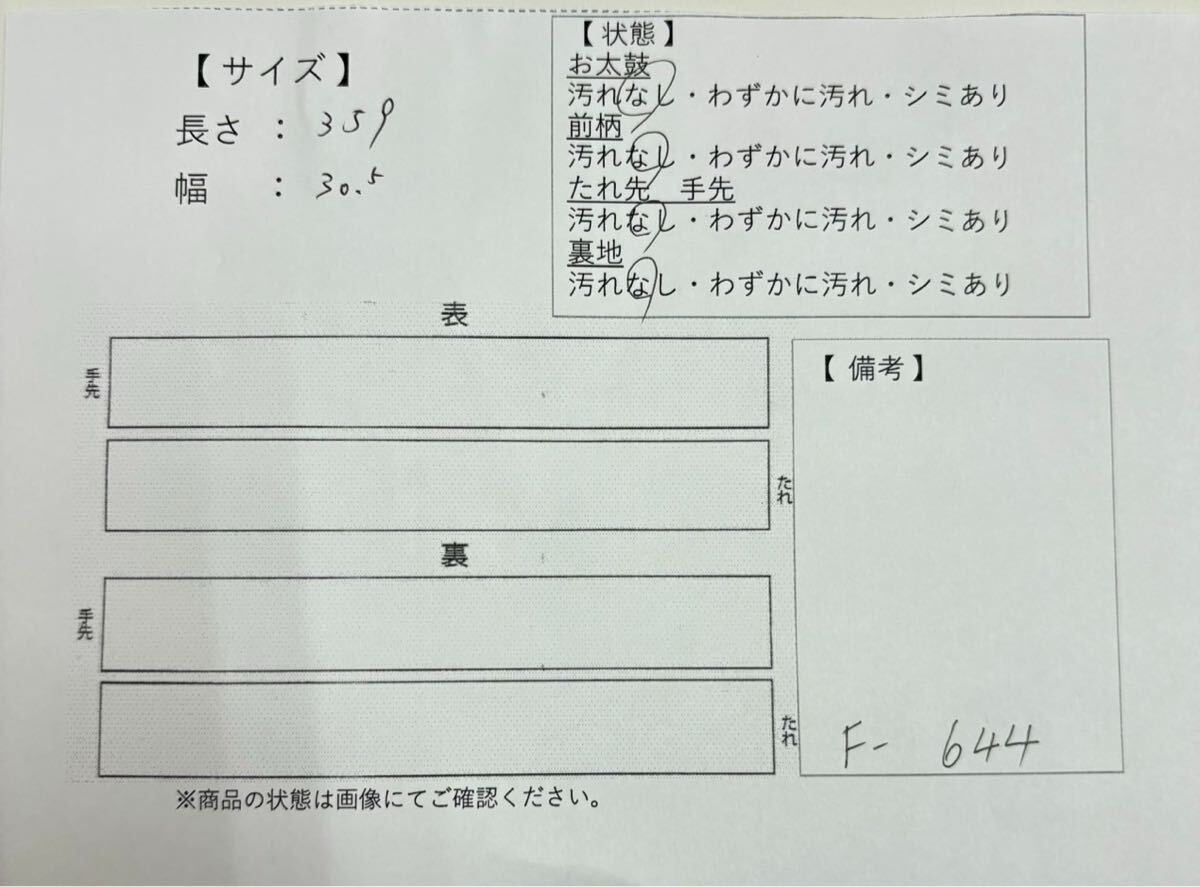 【 サイズ 】
長さ : 359
幅 : 30.5
【 状態 】
お太鼓
汚れなし・わずかに汚れ・シミあり
前柄
汚れなし・わずかに汚れ・シミあり
たれ先 手先
汚れなし・わずかに汚れ・シミあり
裏地
汚れなし・わずかに汚れ・シミあり
表
手先
たれ
裏
手先
たれ
【 備考 】
F- 644
※商品の状態は画像にてご確認ください。